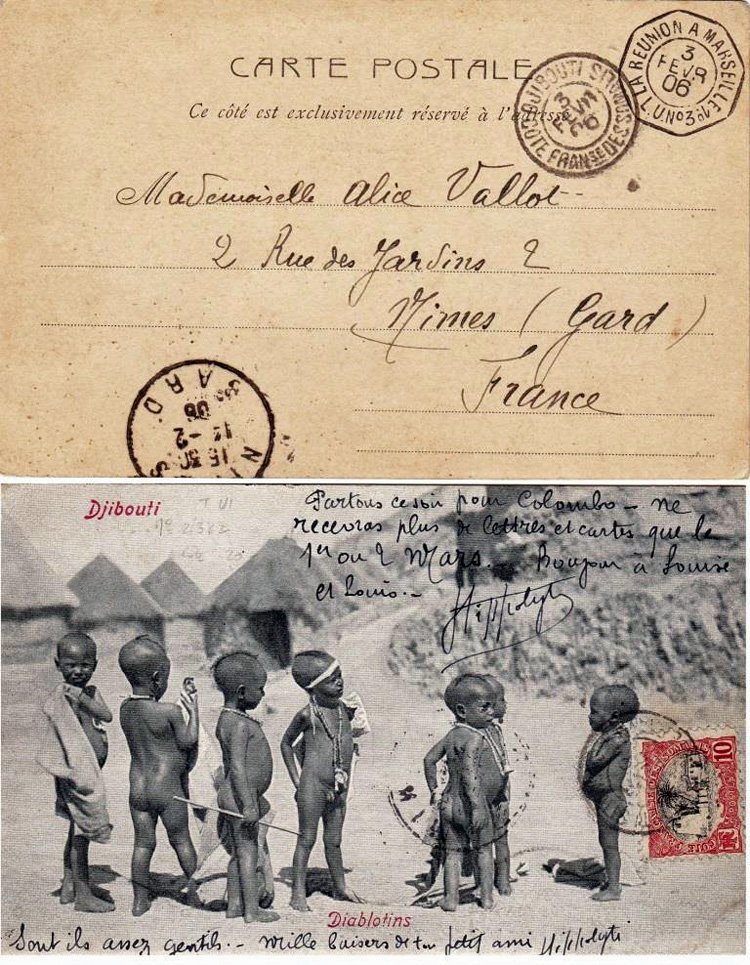 CARTE POSTALE
Ce côté est exclusivement réservé à l'adresse
DJIBOUTI
CÔTE FRANSE DES SOMALIS
3
FEVR
06
LA REUNION A MARSEILLE
3
FEVR
06
L.U.No3
Mademoiselle Alice Vallot
2 Rue des Jardins 2
Nimes (Gard)
France
GARD
06
-2
15 30
Djibouti
Partons ce soir pour Colombo - ne
recevras plus de lettres et cartes que le
1er ou 2 Mars. - Bonjour à Louise
et Louis. -
Hippolyte
10
Diablotins
Sont ils assez gentils. - Mille baisers de ton petit ami Hippolyte